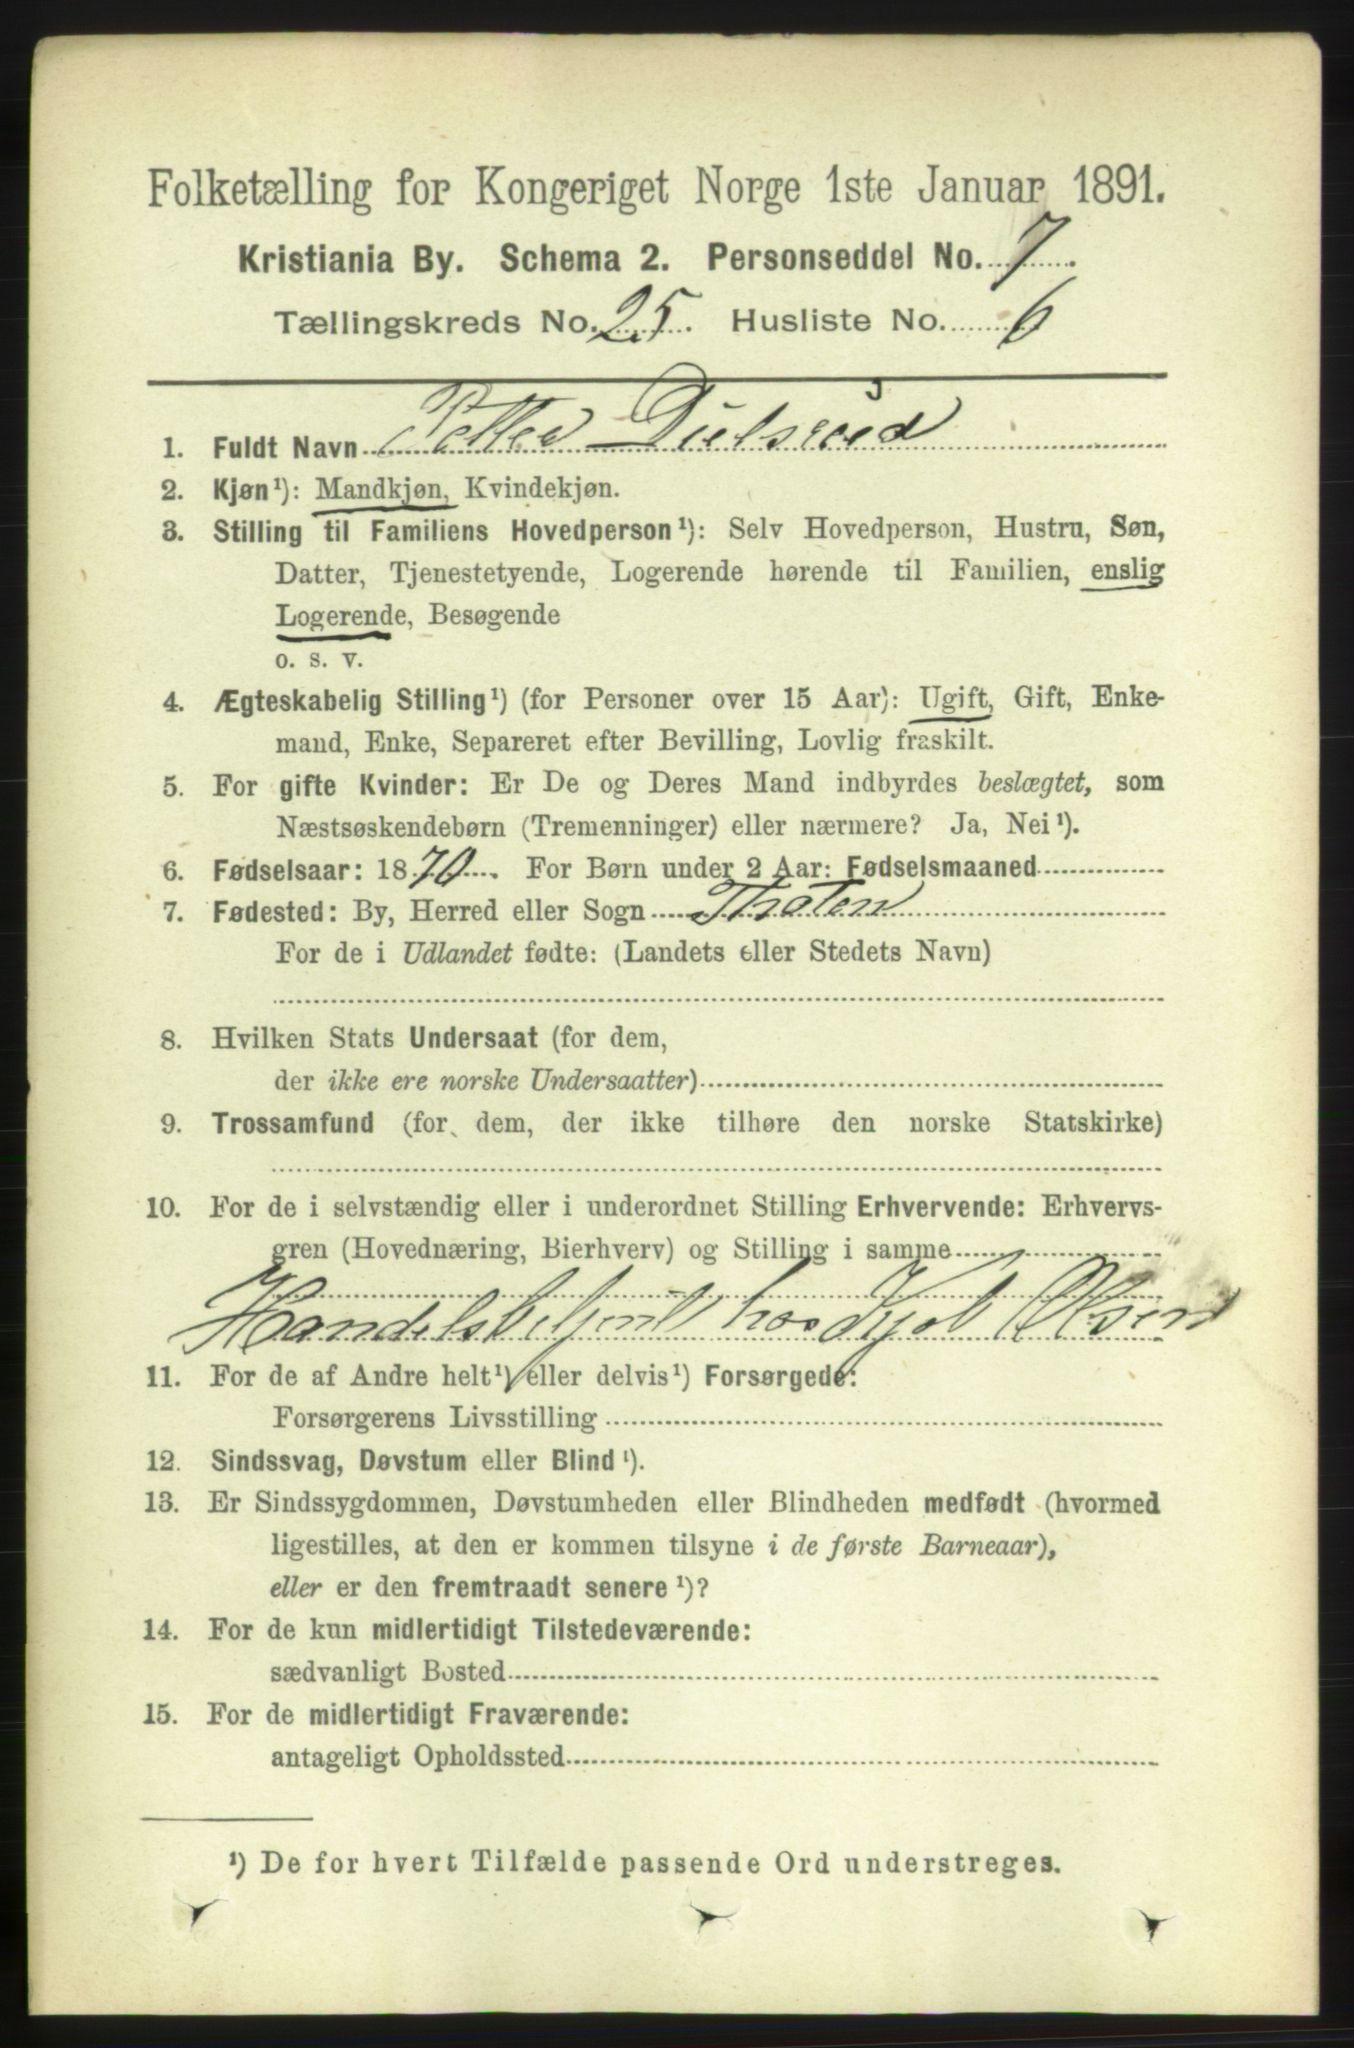 Folketælling for Kongeriget Norge 1ste Januar 1891.
Kristiania By. Schema 2. Personseddel No. 7.
Tællingskreds No. 25. Husliste No. 6
1. Fuldt Navn
2. Kjøn¹): Mandkjøn, Kvindekjøn.
3. Stilling til Familiens Hovedperson¹): Selv Hovedperson, Hustru, Søn,
Datter, Tjenestetyende, Logerende hørende til Familien, enslig
Logerende, Besøgende
o. s. v.
4. Ægteskabelig Stilling¹) (for Personer over 15 Aar): Ugift, Gift, Enke-
mand, Enke, Separeret efter Bevilling, Lovlig fraskilt.
5. For gifte Kvinder: Er De og Deres Mand indbyrdes beslægtet, som
Næstsøskendebørn (Tremenninger) eller nærmere? Ja, Nei¹).
6. Fødselsaar: 1870. For Børn under 2 Aar: Fødselsmaaned
7. Fødested: By, Herred eller Sogn Thoten
For de i Udlandet fødte: (Landets eller Stedets Navn)
8. Hvilken Stats Undersaat (for dem,
der ikke ere norske Undersaatter)
9. Trossamfund (for dem, der ikke tilhøre den norske Statskirke)
10. For de i selvstændig eller i underordnet Stilling Erhvervende: Erhvervs-
gren (Hovednæring, Bierhverv) og Stilling i samme
Handelsbetjent hos Olsen
11. For de af Andre helt¹) eller delvis¹) Forsørgede:
Forsørgerens Livsstilling
12. Sindssvag, Døvstum eller Blind¹).
13. Er Sindssygdommen, Døvstumheden eller Blindheden medfødt (hvormed
ligestilles, at den er kommen tilsyne i de første Barneaar),
eller er den fremtraadt senere¹)?
14. For de kun midlertidigt Tilstedeværende:
sædvanligt Bosted
15. For de midlertidigt Fraværende:
antageligt Opholdssted
¹) De for hvert Tilfælde passende Ord understreges.